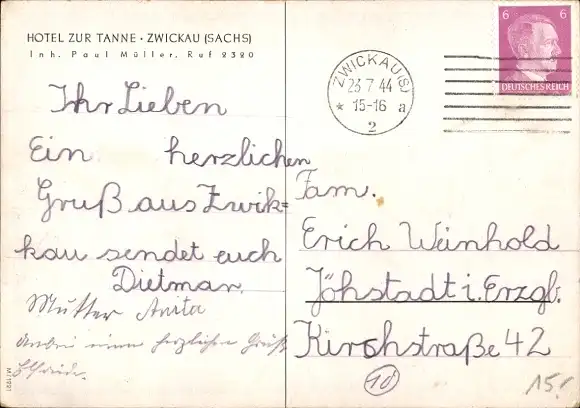 HOTEL ZUR TANNE · ZWICKAU (SACHS)
Inh. Paul Müller, Ruf 2320
Ihr Lieben
Ein herzlichen
Gruß aus Zwik=
kau sendet euch
Dietmar.
Mutter Anita
einen herzlichen Gruß
M/1991
ZWICKAU (S)
23.7.44
* 15-16 a
2
6 6
DEUTSCHES REICH
Fam.
Erich Weinhold
Jöhstadt i. Erzgb.
Kirchstraße 42
10
15.-